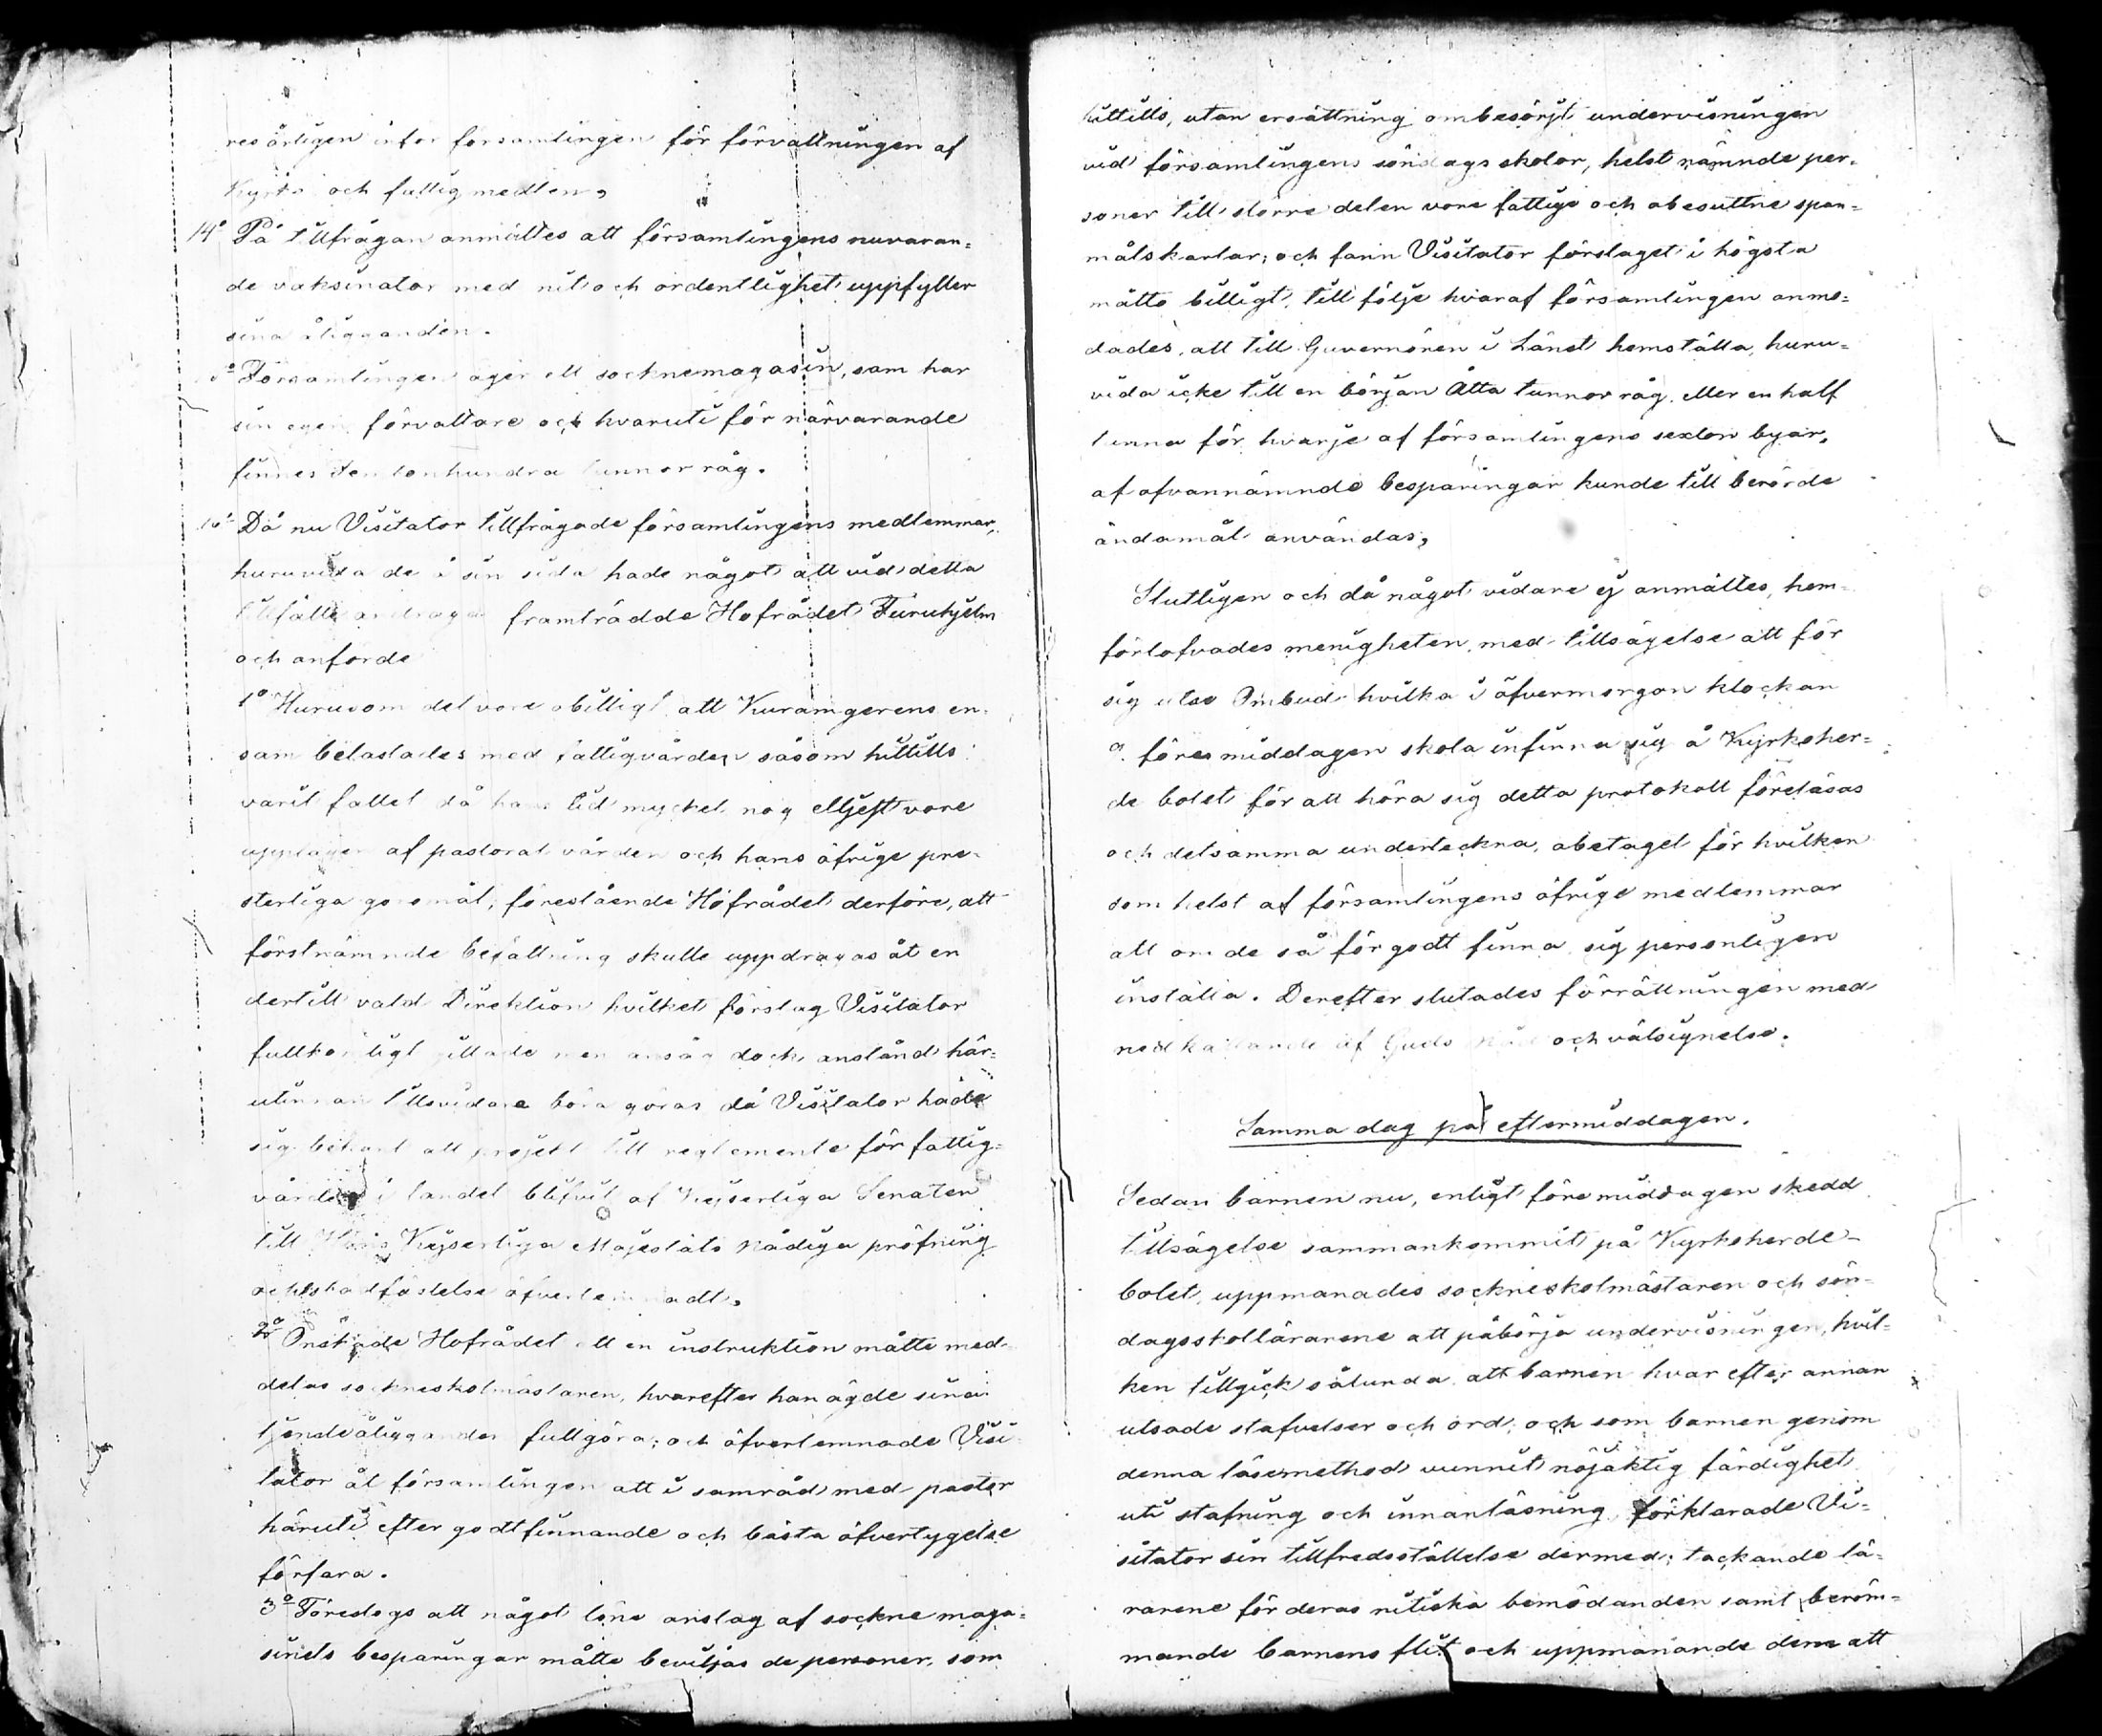 res årligen inför församlingen för förvaltningen af
Kyrko och fattigmedlen,
14º På tillfrågan anmältes att församlingens nuvaran-
de vaksinator med nit och ordentlighet uppfyller
sina åligganden.
Församlingen äger ett socknemagasin, som har
sin egen förvaltare och hvaruti för närvarande
finnes femtonhundra tunnor råg.
16º Då nu Visitator tillfrågade församlingens medlemmar,
huruvida de å sin sida hade något att vid detta
tillfälle andraga framträdde Hofrådet Furuhjelm
och anförde
1º Hurusom det vore obilligt att Kuramgerens en-
sam belastades med fattigvården såsom hittills
varit fallet då hans tid mycket nog eljest vore
upptagen af pastoral vården och hans öfrige pre-
sterliga göromål; föreslående Hofrådet derföre, att
förstnämnde befattning skulle uppdragas åt en
dertill vald Direktion hvilket förslag Visitator
fullkomligt gillade men ansåg dock anstånd här-
utinnan tillsvidare böra göras då Visitator hade
sig bekant att projekt till reglemente för fattig-
vården i landet blifvit af Kejserliga Senaten
till Hans Kejserliga Majestäts nådiga pröfning
och stadfästelse öfverlemnadt,
2º Önskade Hofrådet att en instruktion måtte med-
delas sockneskolmästaren, hvarefter han ägde sina
tjensteåligganden fullgöra; och öfverlemnade Visi-
tator åt församlingen att i samråd med pastor
häruti efter godtfinnande och bästa öfvertygelse
förfara.
3º Föreslogs att något löne anslag af sockne maga-
sinets besparingar måtte beviljas de personer, som
hittills, utan ersättning ombesörjt undervisningen
vid församlingens söndags skolor, helst nämnde per-
soner till större delen vore fattige och obesuttne span-
målskarlar; och fann Visitator förslaget i högsta
måtto billigt, till följe hvaraf församlingen anmo-
dades, att till Guvernören i Länet hemställa, huru-
vida icke till en början Åtta tunnor råg, eller en half
tunna för hvarje af församlingens sexton byar,
af ofvannämnde besparingar kunde till berörde
ändamål användas,
Slutligen och då något vidare ej anmältes, hem-
förlofvades menigheten, med tillsägelse att för
sig utse Ombud hvilka i öfvermorgon klockan
9. föremiddagen skola infinna sig å Kyrkoher-
de bolet för att höra sig detta protokoll föreläsas
och detsamma underteckna, obetaget för hvilken
som helst af församlingens öfrige medlemmar
att om de så för godt finna sig personligen
inställa. Derefter slutades förrättningen med
nedkallande af Guds nåd och välsignelse.
Samma dag på eftermiddagen.
Sedan barnen nu, enligt föremiddagen skedd
tillsägelse sammankommit på Kyrkoherde-
bolet, uppmanades sockneskolmästaren och sön-
dagsskollärarene att påbörja undervisningen, hvil-
ken tillgick sålunda att barnen hvar efter annan
utsade stafvelser och ord; och som barnen genom
denna läsemethod vunnit nöjaktig färdighet
uti stafning och innanläsning förklarade Vi-
sitator sin tillfredsställelse dermed; tackande lä-
rarene för deras nitiska bemödanden samt beröm-
mande barnens flit och uppmanande dem att